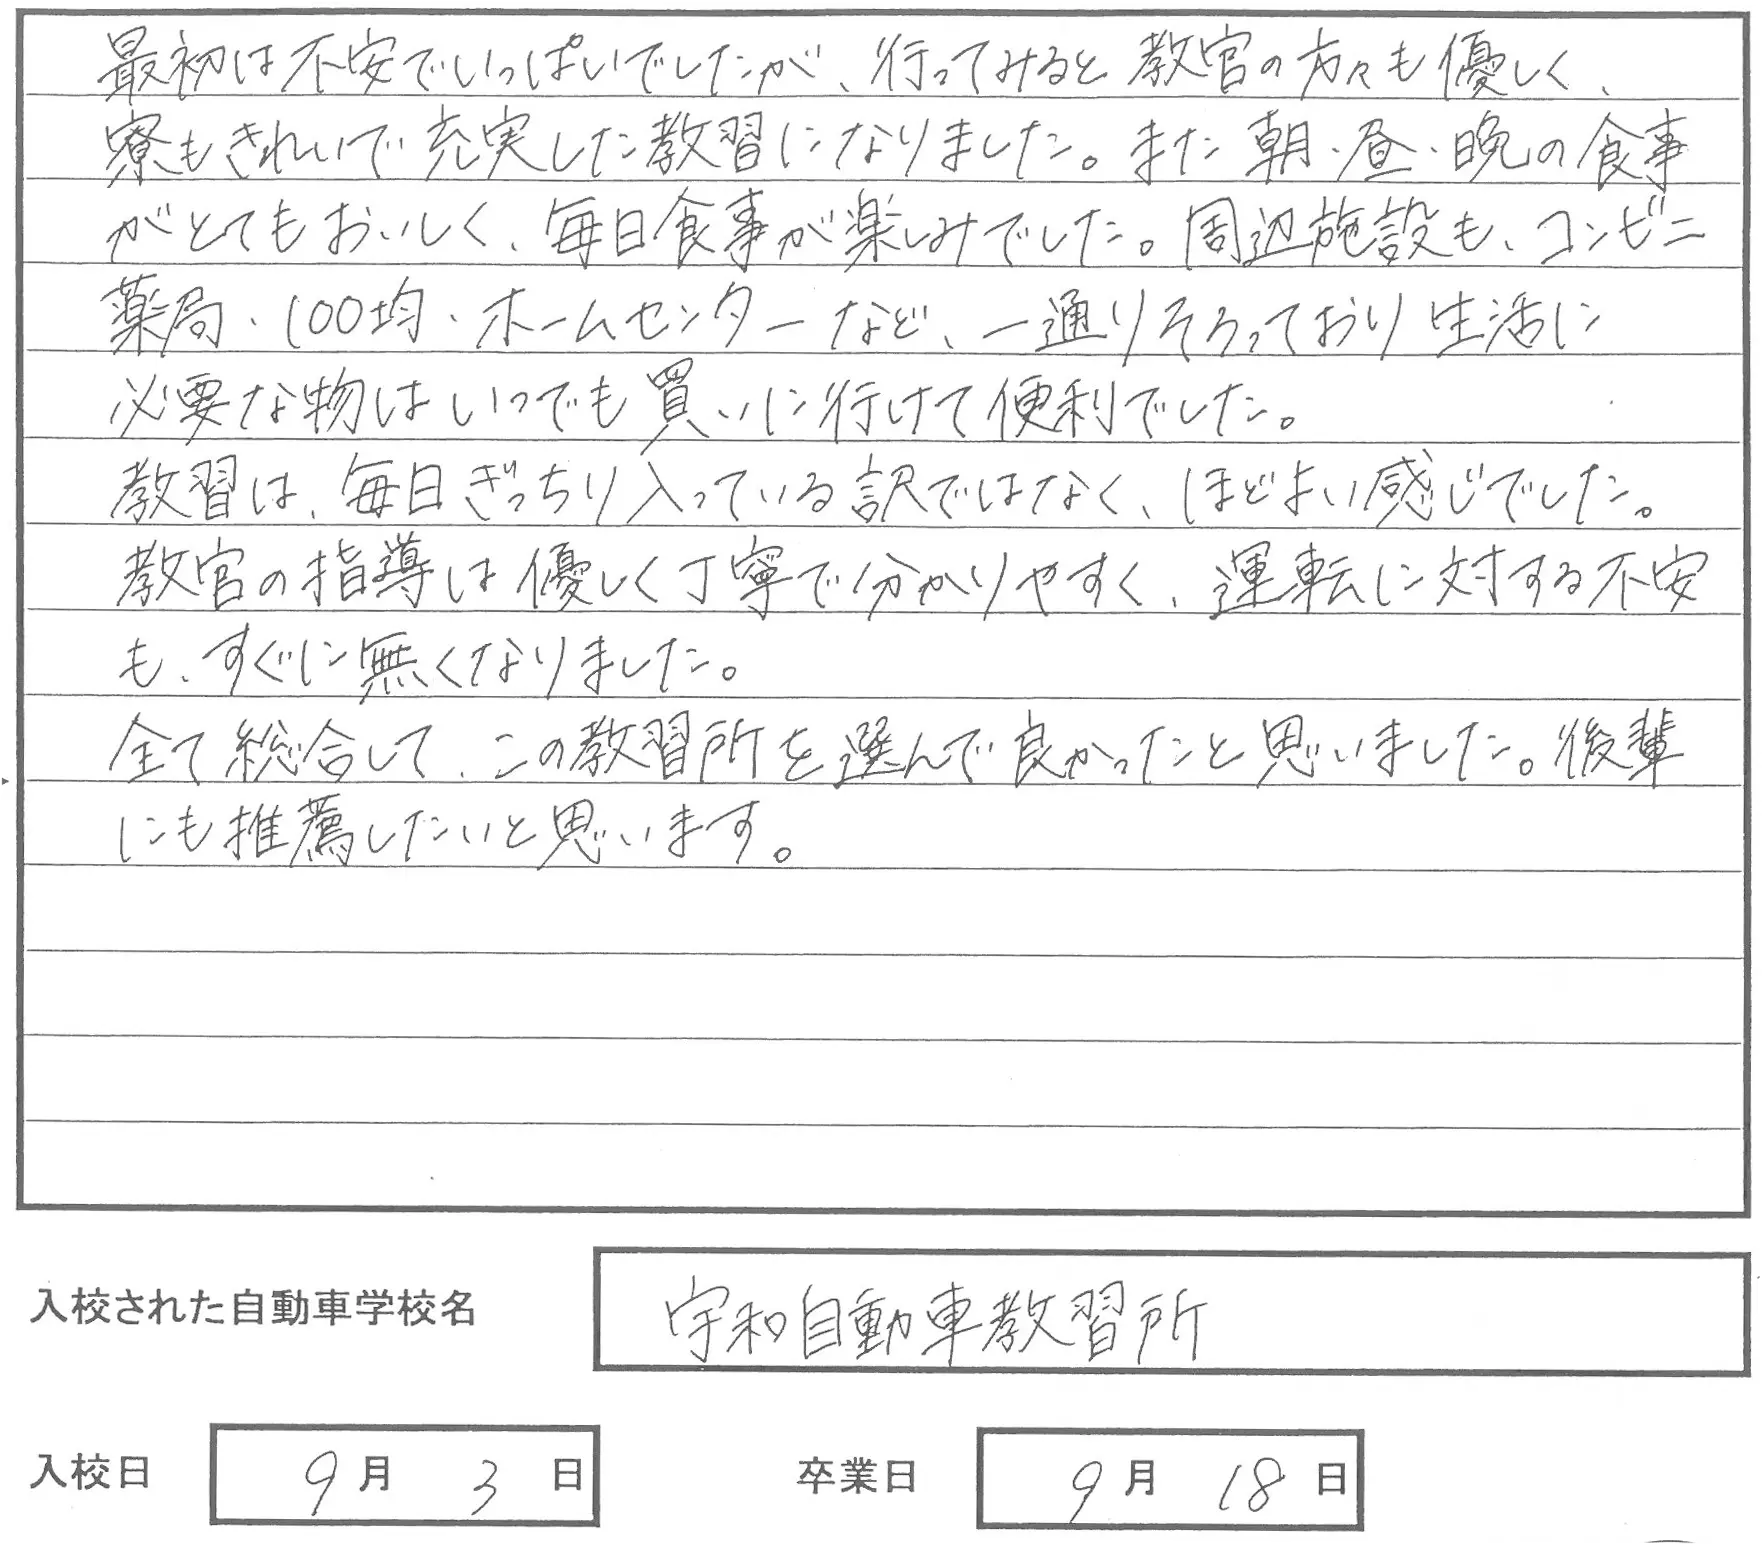 最初は不安でいっぱいでしたが、行ってみると教官の方々も優しく、
寮もきれいで充実した教習になりました。また朝・昼・晩の食事
がとてもおいしく、毎日食事が楽しみでした。周辺施設も、コンビニ
薬局・100均・ホームセンターなど、一通りそろっており生活に
必要な物はいつでも買いに行けて便利でした。
教習は、毎日ぎっちり入っている訳ではなく、ほどよい感じでした。
教官の指導は優しく丁寧で分かりやすく、運転に対する不安
も、すぐに無くなりました。
全て総合して、この教習所を選んで良かったと思いました。後輩
にも推薦したいと思います。
入校された自動車学校名 宇和自動車教習所
入校日 9月3日 卒業日 9月18日